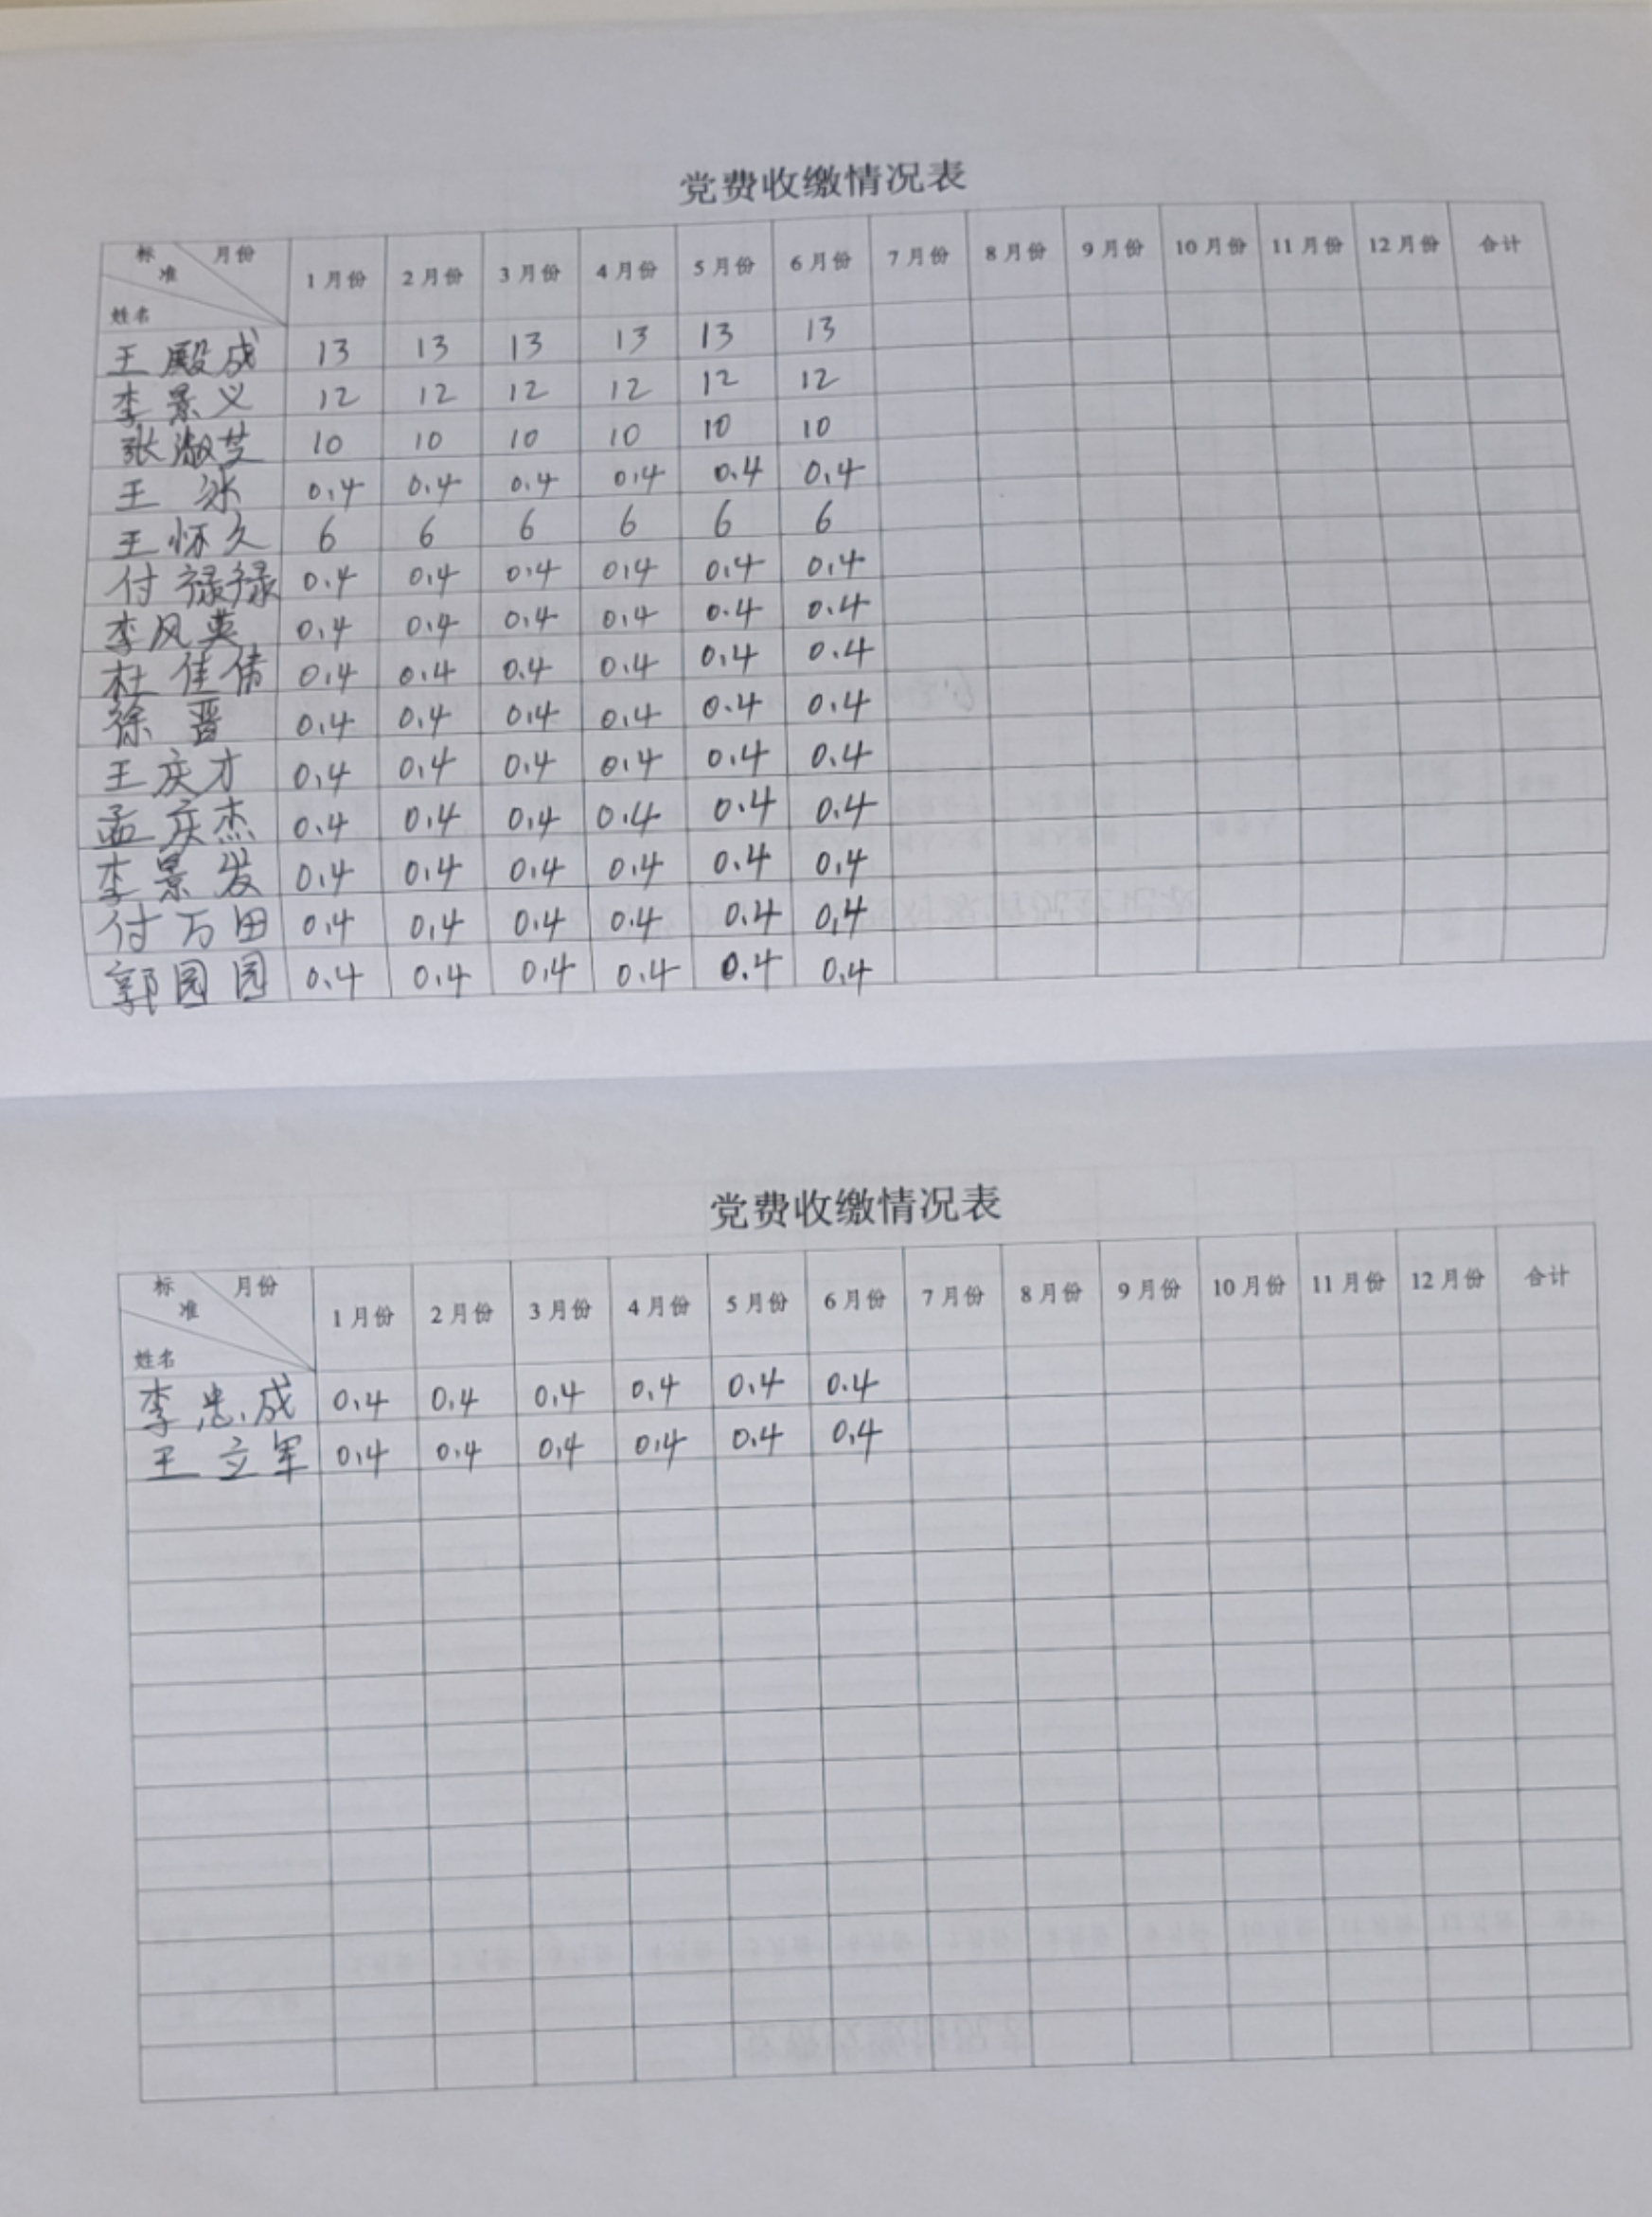 党费收缴情况表
标准 月份 姓名 1月份 2月份 3月份 4月份 5月份 6月份 7月份 8月份 9月份 10月份 11月份 12月份 合计
王殿成 13 13 13 13 13 13
李景义 12 12 12 12 12 12
张淑芝 10 10 10 10 10 10
王冰 0.4 0.4 0.4 0.4 0.4 0.4
王怀久 6 6 6 6 6 6
付禄禄 0.4 0.4 0.4 0.4 0.4 0.4
李风英 0.4 0.4 0.4 0.4 0.4 0.4
杜佳伟 0.4 0.4 0.4 0.4 0.4 0.4
徐晋 0.4 0.4 0.4 0.4 0.4 0.4
王庆才 0.4 0.4 0.4 0.4 0.4 0.4
孟庆杰 0.4 0.4 0.4 0.4 0.4 0.4
李景发 0.4 0.4 0.4 0.4 0.4 0.4
付万田 0.4 0.4 0.4 0.4 0.4 0.4
郭园园 0.4 0.4 0.4 0.4 0.4 0.4
党费收缴情况表
标准 月份 姓名 1月份 2月份 3月份 4月份 5月份 6月份 7月份 8月份 9月份 10月份 11月份 12月份 合计
李忠成 0.4 0.4 0.4 0.4 0.4 0.4
王立军 0.4 0.4 0.4 0.4 0.4 0.4